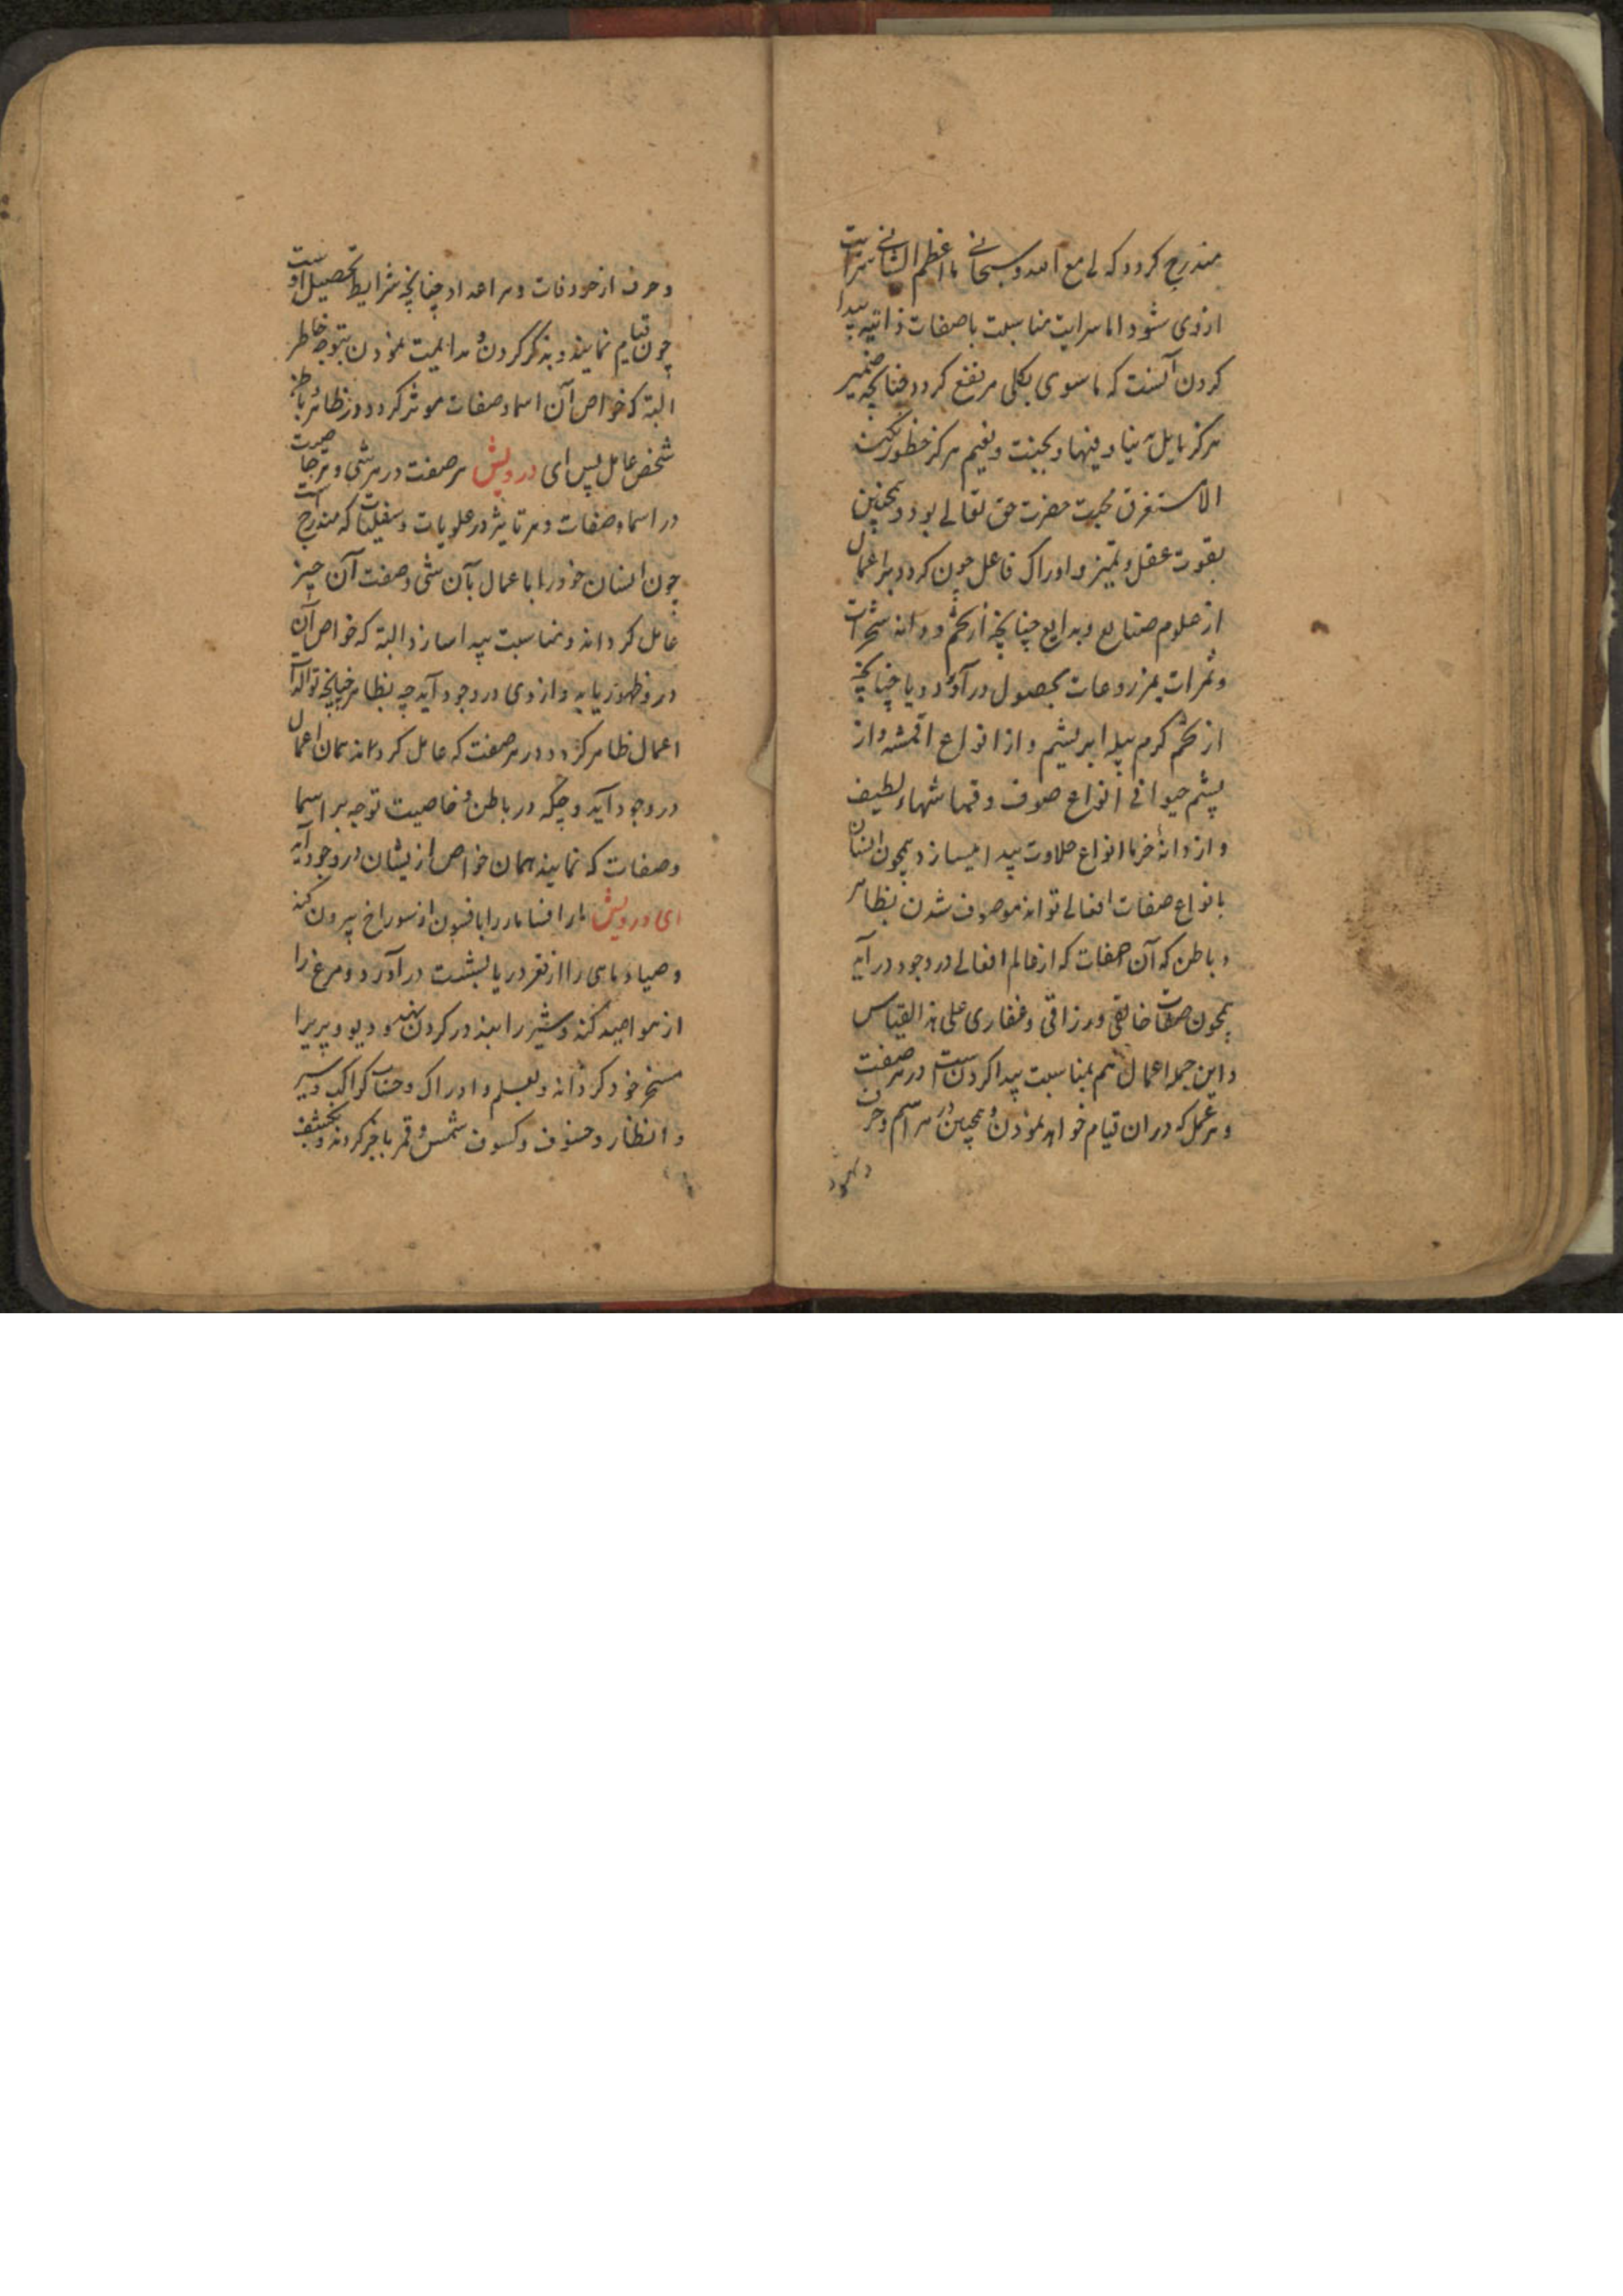 مندرج کردد که لی مع الله و سبحانی ما اعظم الشانی سرایت
ازوی شود اما سرایت مناسبت باصفات ذاتیه پیدا
کردن آنست که ماسوی بکلی مرتفع کردد چنانچه ضمیر
هرکز مایل دنیا و فیها و بجنت و نعیم هرکز خطور نکند
الا مستغرق محبت حضرت حق تعالی بود و همچنین
بقوت عقل و تمیز و ادراک فاعل چون کردد بر اعمال
از علوم صنایع و بدایع چنانچه از تخم و دانه شجرات
و ثمرات بمزروعات بحصول درآورد و یا چنانچه
از تخم کرم پیله ابریشم و از انواع اقمشه و از
پشم حیوانی انواع صوف و قماشهاء لطیف
و از دانهٔ خرما انواع حلاوت پیدا میسازد همچون انسان
بانواع صفات افعالی تواند موصوف شدن بظاهر
و باطن که آن صفات که از عالم افعالی در وجود درآید
همچون صفات خالقی و رزاقی و غفاری علی هذا القیاس
و این جمله اعمال هم بمناسبت پیدا کردن است در هر صفت
و هر عمل که دران قیام خواهد نمودن و همچنین در هر اسم و حرف
و حرف از حروفات و هر اعداد چنانچه شرایط تحصیل اوست
چون قیام نمایند و بذکر کردن و مداومت نمودن بتوجه خاطر
البته که خواص آن اسما و صفات موثر کردد و در ظاهر و باطن
شخص عامل پس ای درویش هر صفت در هر شی و هر خاصیت
در اسما و صفات و هر تاثیر در علویات و سفلیات که مندرج است
چون انسان خود را با عمال بآن شی و صفت آن چیز
عامل کرداند و مناسبت پیدا سازد البته که خواص آن
در وظهور یابد و ازوی در وجود آید چه بظاهر چنانچه
اعمال ظاهر کردد و در هر صفت که عامل کرداند همان اعمال
در وجود آید و چکه در باطن و خاصیت توجه بر اسما
و صفات که نمایند همان خواص ازیشان در وجود آید
ای درویش مار افسا مار را بافسون از سوراخ بیرون کند
و صیاد ماهی را از قعر دریا بشست درآورد و مرغ را
از هوا صید کند و شیر را بند در کردن نهد و دیو و پری را
مسخر خود کرداند و بعلم و ادراک و حساب کواکب و سیر
و انظار و خسوف و کسوف شمس و قمر باخبر کردند و بکشف